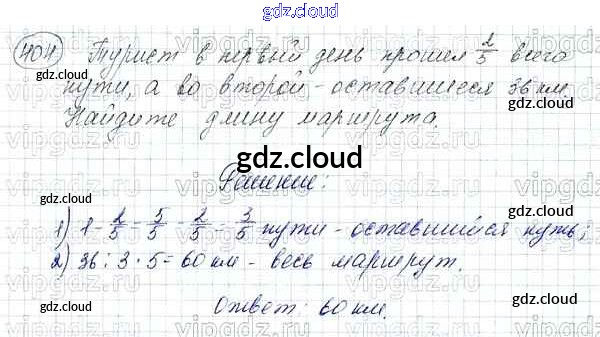 gdz.cloud
404 Турист в первый день прошел 2/5 всего
пути, а во второй - оставшиеся 36 км.
gdz.cloud gdz.cloud
Найдите длину маршрута.
gdz.cloud
Решение:
1) 1 - 2/5 = 5/5 - 2/5 = 3/5 пути - оставшийся путь;
gdz.cloud gdz.cloud
2) 36 : 3 · 5 = 60 км - весь маршрут.
gdz.cloud gdz.cloud
Ответ: 60 км.
gdz.cloud